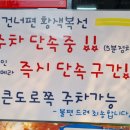 건너편 황색복선
주차 단속중 !! (5분전차
즉시 단속 구간!!
큰도로쪽 주차가능
- 불편드려 죄송합니다 -